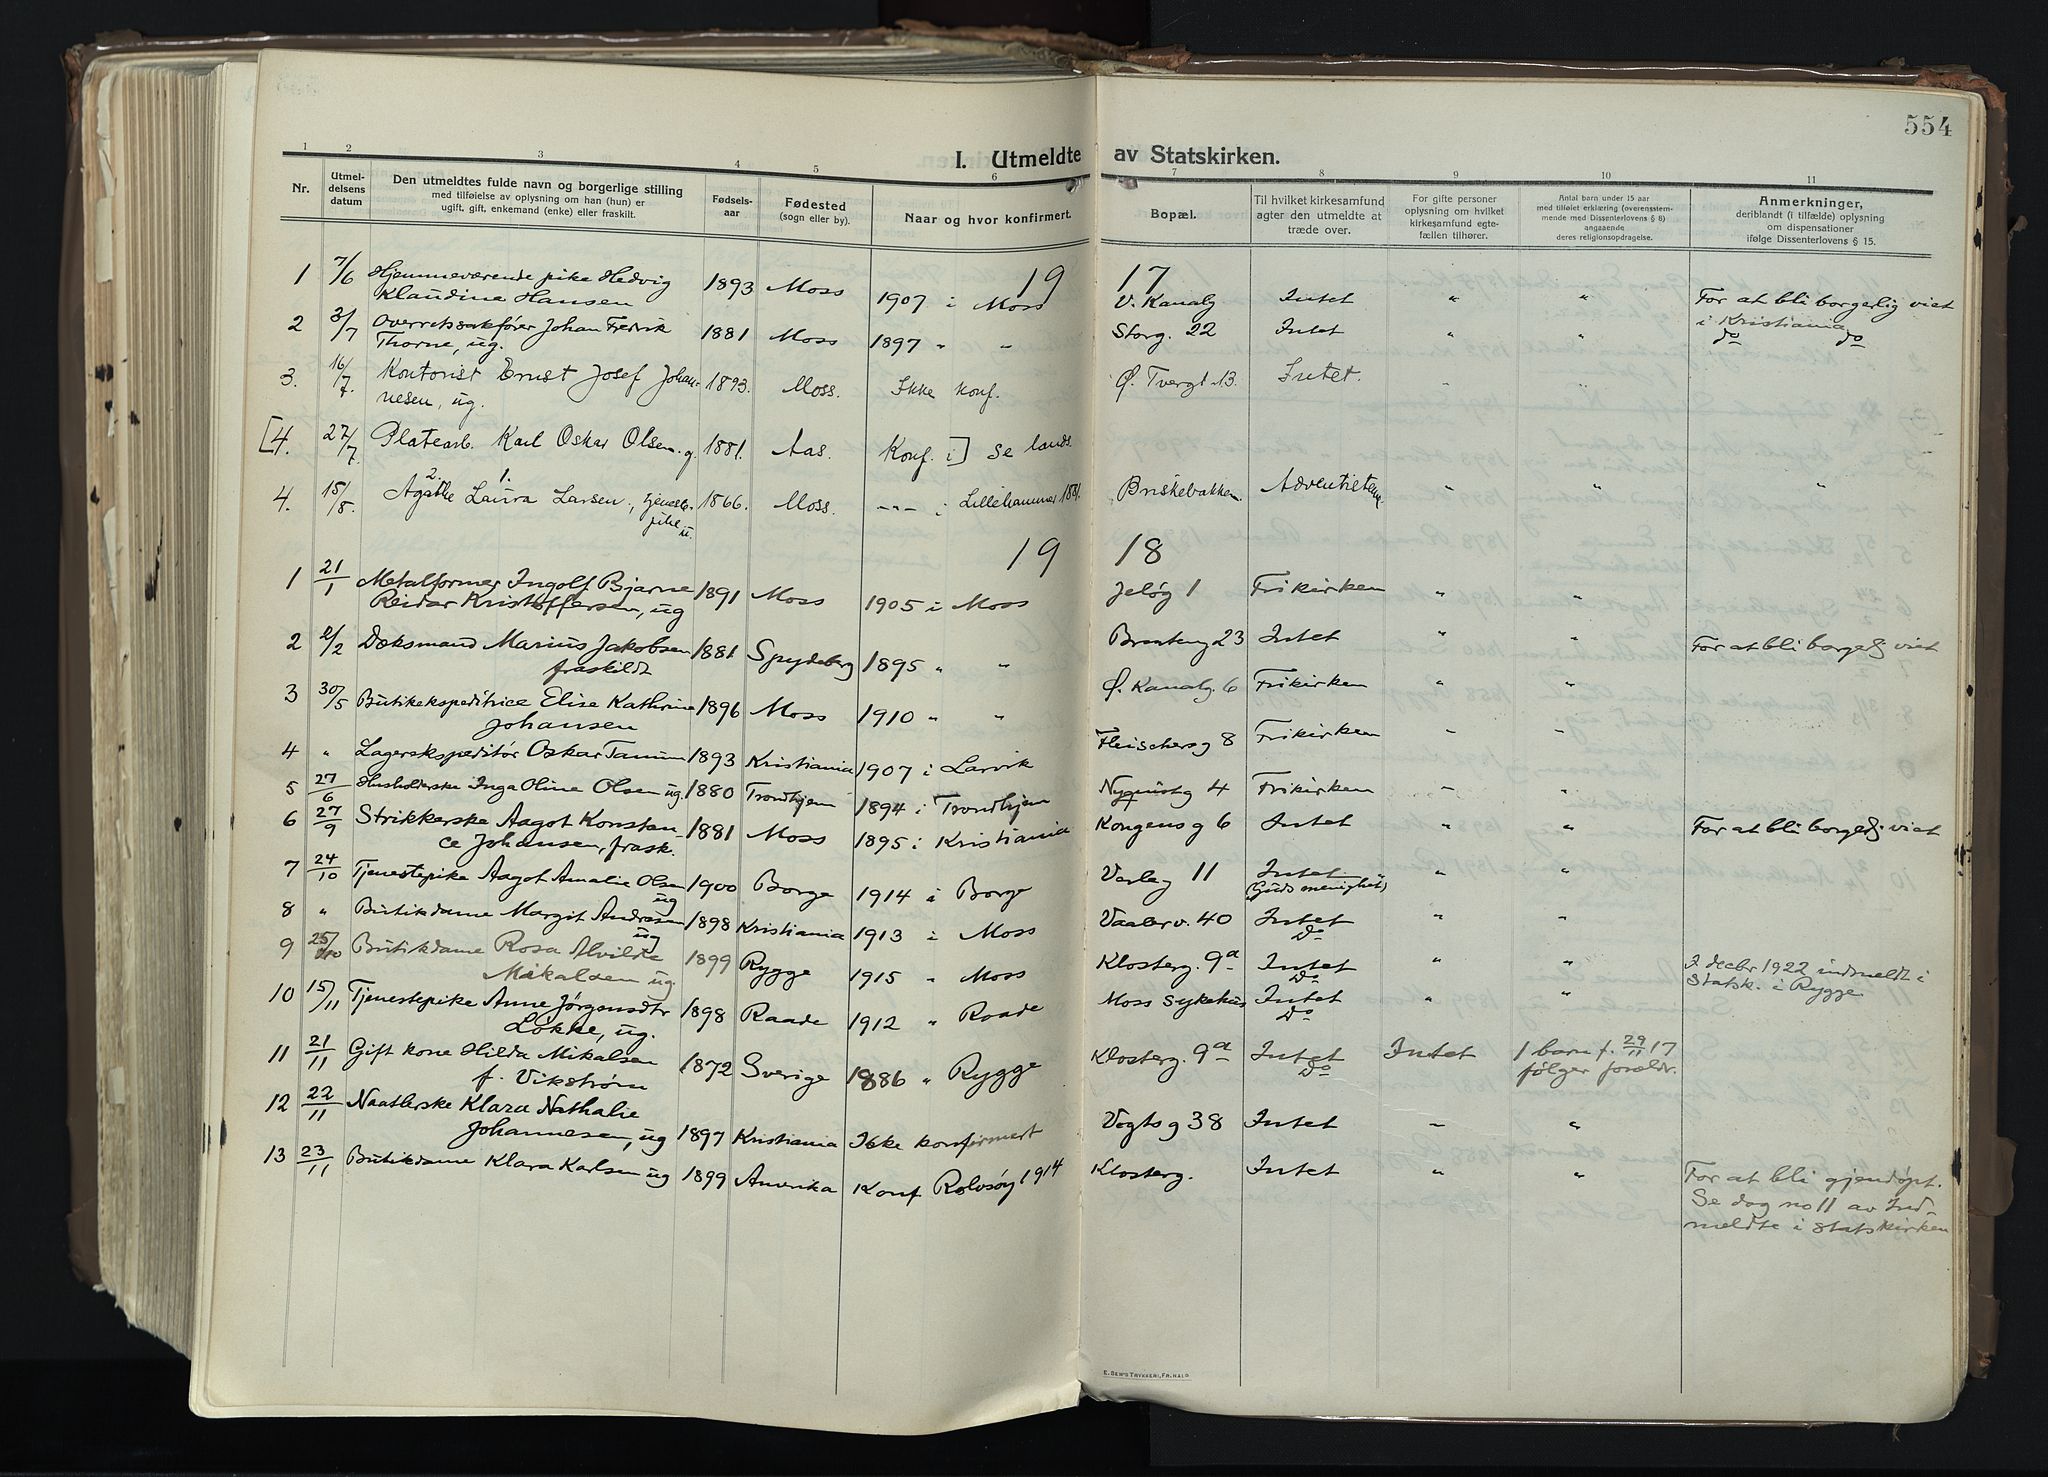 554
I. Utmeldte av Statskirken.
1 2 3 4 5 6 7 8 9 10 11
Nr.
Utmel-
delsens
datum
Den utmeldtes fulde navn og borgerlige stilling
med tilføielse av oplysning om han (hun) er
ugift, gift, enkemand (enke) eller fraskilt.
Fødsels-
aar
Fødested
(sogn eller by).
Naar og hvor konfirmert.
Bopæl.
Til hvilket kirkesamfund
agter den utmeldte at
træde over.
For gifte personer
oplysning om hvilket
kirkesamfund egte-
fællen tilhører.
Antal barn under 15 aar
med tilføiet erklæring (overensstem-
mende med Dissenterlovens § 8)
angaaende
deres religionsopdragelse.
Anmerkninger,
deriblandt (i tilfælde) oplysning
om dispensationer
ifølge Dissenterlovens § 15.
19 17
1 7/6 Hjemmeværende pike Hedvig 1893 Moss 1907 i Moss V. Kanalg Intet " " For at bli borgerlig viet
Klaudine Hansen i Kristiania
2 3/7 Overretssakfører Johan Fredrik 1881 Moss 1897 " " Storg. 22 Intet " " do do
Thorne, ug.
3. 16/7. Kontorist Ernst Josef Johan- 1893. Moss. Ikke konf. Ø. Tvergt. 13. Intet. "
nesen, ug.
[4. 27/7. Platearb. Karl Oskar Olsen. g. 1881. Aas. Konf. i] Se lands.
4. 15/8. Agathe 2. Laura 1. Larsen, tjeneste- 1866. Moss. -"- i Lillehammer 1881. Briskebakken Adventistene " " "
pike u.
19 18
1 21/1 Metalformer Ingolf Bjarne 1891 Moss 1905 i Moss Jeløg 1 Frikirken " "
Reidar Kristoffersen, ug
2 2/2 Dæksmand Marius Jakobsen 1881 Spydeberg 1895 " " Brænteng 23 Intet " " For at bli borgelig viet
fraskildt
3 30/5 Butikekspeditrice Elise Kathrine 1896 Moss 1910 " " Ø. Kanalg. 6 Frikirken " "
Johansen
4 " Lagerekspeditør Oskar Tanum 1893 Kristiania 1907 i Larvik Fleischersg 8 Frikirken " "
5 27/6 Husholderske Inga Oline Olsen ug. 1880 Trondhjem 1894 i Trondhjem Nyquistg 4 Frikirken " "
6 27/9 Strikkerske Aagot Konstan- 1881 Moss 1895 i Kristiania Kongens g 6 Intet " " For at bli borgelig viet
ce Johansen, frask.
7 24/10 Tjenestepike Aagot Amalie Olsen 1900 Borge 1914 i Borge Varleg 11 Intet " "
ug (Guds menighet)
8 " Butikdame Margit Andresen 1898 Kristiania 1913 i Moss Vaalerv. 40 Intet " "
ug Do
9 25/10 Butikdame Rosa Alvilde 1899 Rygge 1915 " Moss Klosterg. 9a Intet " " 2 decbr 1922 indmeldt i
Mikalsen ug. Do Statsk. i Rygge
10 15/11 Tjenestepike Anne Jørgensdtr 1898 Raade 1912 " Raade Moss Sykehus Intet " "
Løkke, ug. Do
11 21/11 Gift kone Hilda Mikalsen 1872 Sverige 1886 " Rygge Klosterg. 9a Intet Intet 1 barn f. 29/11 17
f. Vikstrøm Do følger foreldr.
12 22/11 Naatlerske Klara Nathalie
Johannesen, ug 1897 Kristiania Ikke konfirmert Vogts g 38 Intet " "
13 23/11 Butikdame Klara Karlsen ug 1899 Amerika Konf Rolvsøy 1914 Klosterg. Intet " " For at bli gjendøpt.
Se dog no 11 av Ind-
meldte i Statskirken
E. SEM'S TRYKKERI, FR.HALD